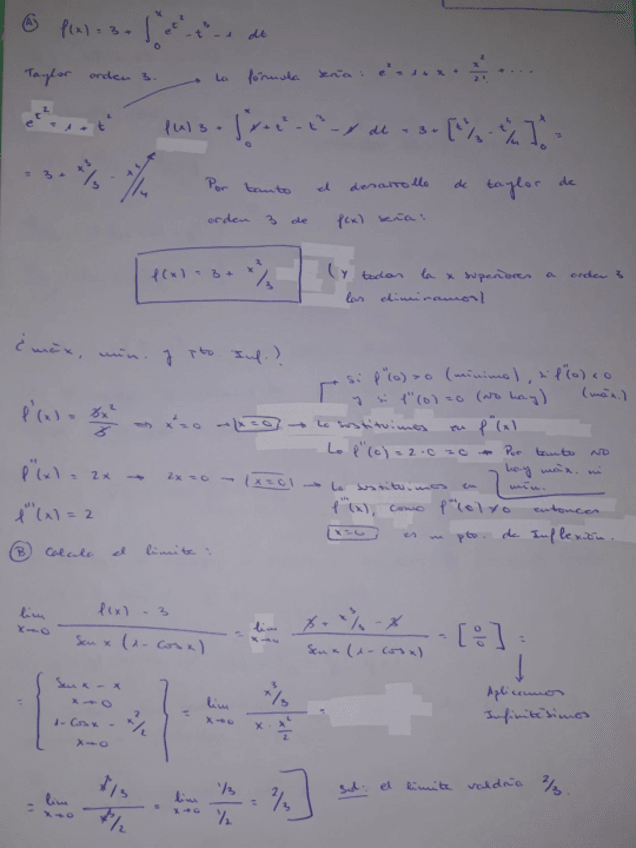 (A) f(x) = 3 + ∫₀ˣ e^t² - t³ - 1 dt
Taylor orden 3. → La fórmula sería: eˣ = 1 + x + x²/2! + ...
e^t² = 1 + t² f(x) 3 + ∫₀ˣ 1 + t² - t³ - 1 dt = 3 + [t³/3 - t⁴/4]₀ˣ =
= 3 + x³/3 - x⁴/4
Por tanto el desarrollo de taylor de
orden 3 de f(x) sería:
f(x) = 3 + x³/3 (y todas la x superiores a orden 3
las eliminamos)
¿máx, mín. y pto Inf.?
→ Si f''(0) > 0 (mínimo), si f''(0) < 0
y si f''(0) = 0 (No hay) (máx.)
f'(x) = 3x²/3 ⇒ x² = 0 → x = 0 → Lo sustituimos en f''(x)
Lo f''(0) = 2·0 = 0 → Por tanto NO
hay máx. ni
mín.
f''(x) = 2x → 2x = 0 → x = 0 → Lo sustituimos en
f'''(x) = 2 f'''(x), como f'''(0) ≠ 0 entonces
x = 0 es un pto. de Inflexión.
(B) Calcula el límite:
lim x→0 f(x) - 3 / Sen x (1 - Cos x) = lim x→0 3 + x³/3 - 3 / Sen x (1 - Cos x) = [0/0] =
↓
Aplicamos
Infinitésimos
= { Sen x ~ x x→0 1 - Cos x ~ x²/2 x→0 } = lim x→0 x³/3 / x · x²/2 =
= lim x→0 x³/3 / x³/2 = lim x→0 1/3 / 1/2 = 2/3] Sol: el límite valdría 2/3.